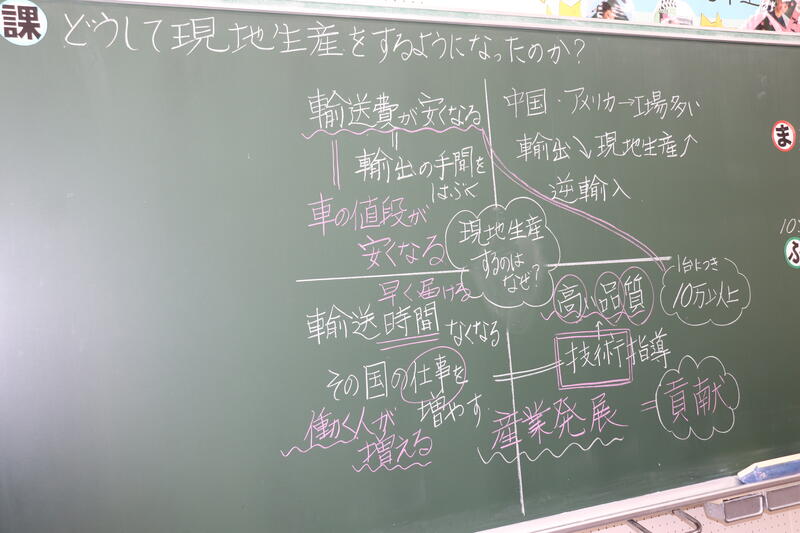 課 どうして現地生産をするようになったのか?
輸送費が安くなる
輸出の手間を
はぶく
車の値段が
安くなる
中国・アメリカ→工場多い
輸出↘現地生産↑
逆輸入
現地生産
するのは
なぜ?
1台につき
10万以上
早く届ける
輸送時間なくなる
その国の仕事を
増やす
働く人が
増える
高い品質
↑
技術指導
産業発展
=貢献
ま
ふ